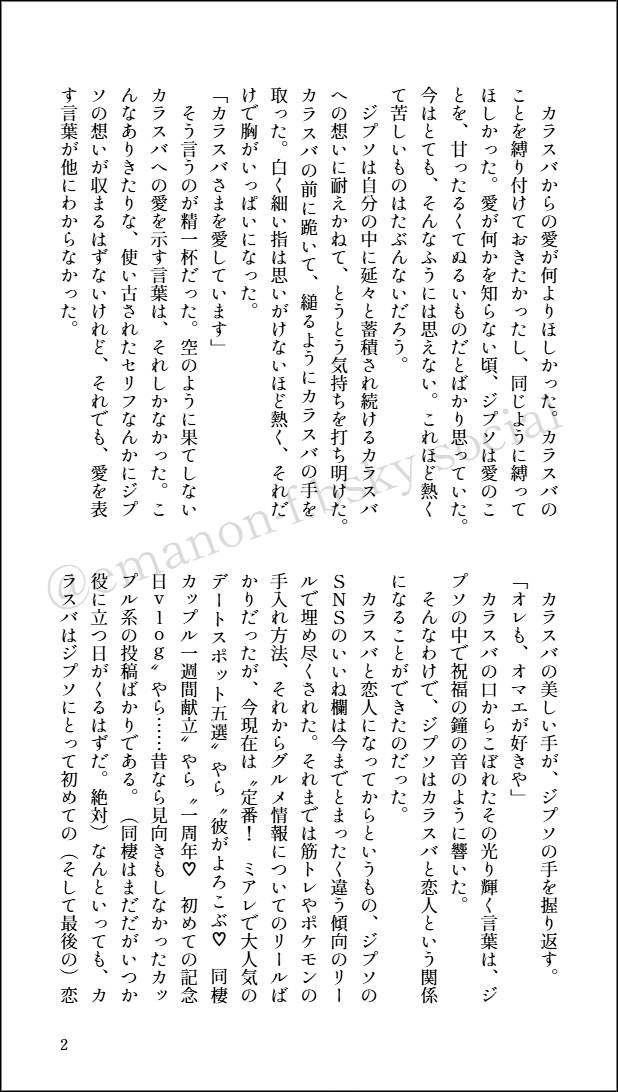 カラスバからの愛が何よりほしかった。カラスバの
ことを縛り付けておきたかったし、同じように縛って
ほしかった。愛が何かを知らない頃、ジプソは愛のこ
とを、甘ったるくてぬるいものだとばかり思っていた。
今はとても、そんなふうには思えない。これほど熱く
て苦しいものはたぶんないだろう。
ジプソは自分の中に延々と蓄積され続けるカラスバ
への想いに耐えかねて、とうとう気持ちを打ち明けた。
カラスバの前に跪いて、縋るようにカラスバの手を
取った。白く細い指は思いがけないほど熱く、それだ
けで胸がいっぱいになった。
「カラスバさまを愛しています」
そう言うのが精一杯だった。空のように果てしない
カラスバへの愛を示す言葉は、それしかなかった。こ
んなありきたりな、使い古されたセリフなんかにジプ
ソの想いが収まるはずないけれど、それでも、愛を表
す言葉が他にわからなかった。
カラスバの美しい手が、ジプソの手を握り返す。
「オレも、オマエが好きや」
カラスバの口からこぼれたその光り輝く言葉は、ジ
プソの中で祝福の鐘の音のように響いた。
そんなわけで、ジプソはカラスバと恋人という関係
になることができたのだった。
カラスバと恋人になってからというもの、ジプソの
SNSのいいね欄は今までとまったく違う傾向のリー
ルで埋め尽くされた。それまでは筋トレやポケモンの
手入れ方法、それからグルメ情報についてのリールば
かりだったが、今現在は〝定番！　ミアレで大人気の
デートスポット五選〟やら〝彼がよろこぶ♡　同棲
カップル一週間献立〟やら〝一周年♡　初めての記念
日vlog〟やら……昔なら見向きもしなかったカッ
プル系の投稿ばかりである。（同棲はまだだがいつか
役に立つ日がくるはずだ。絶対）なんといっても、カ
ラスバはジプソにとって初めての（そして最後の）恋
2
@emanon-f.bsky.social